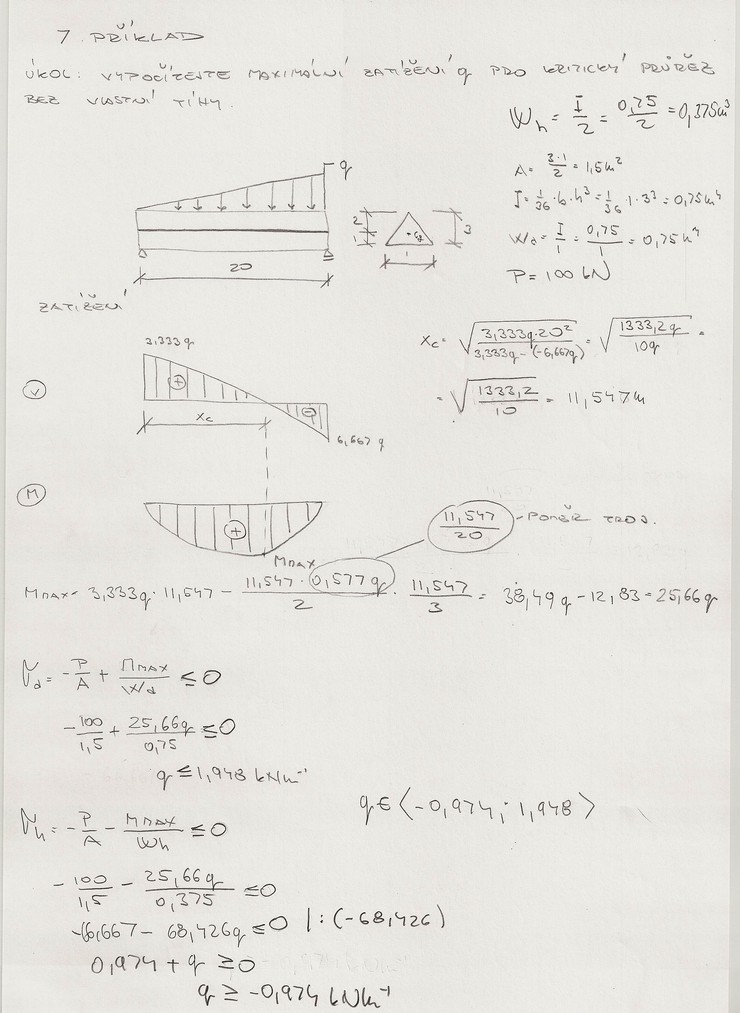 7. PŘÍKLAD
ÚKOL: VYPOČÍTEJTE MAXIMÁLNÍ ZATÍŽENÍ q PRO KRITICKÝ PRŮŘEZ
BEZ VLASTNÍ TÍHY.
Wh = I/2 = 0,75/2 = 0,375m³
A = 3·1/2 = 1,5m²
I = 1/36·b·h³ = 1/36·1·3³ = 0,75m⁴
Wd = I/1 = 0,75/1 = 0,75m⁴
P = 100 kN
q
2
1
Cg
3
1
20
ZATÍŽENÍ
3,333q
V
+
-
xc
6,667q
xc = √(3,333q·20²/3,333q-(-6,667q)) = √(1333,2q/10q) =
= √(1333,2/10) = 11,547m
M
+
Mmax
11,547/20 - POMĚR TROJ.
Mmax = 3,333q·11,547 - 11,547·0,577q/2 · 11,547/3 = 38,49q - 12,83 = 25,66q
σd = -P/A + Mmax/Wd ≤ 0
-100/1,5 + 25,66q/0,75 ≤ 0
q ≤ 1,948 kNm⁻¹
q ∈ ⟨-0,974; 1,948⟩
σh = -P/A - Mmax/Wh ≤ 0
-100/1,5 - 25,66q/0,375 ≤ 0
-66,667 - 68,426q ≤ 0 |:(-68,426)
0,974 + q ≥ 0
q ≥ -0,974 kNm⁻¹